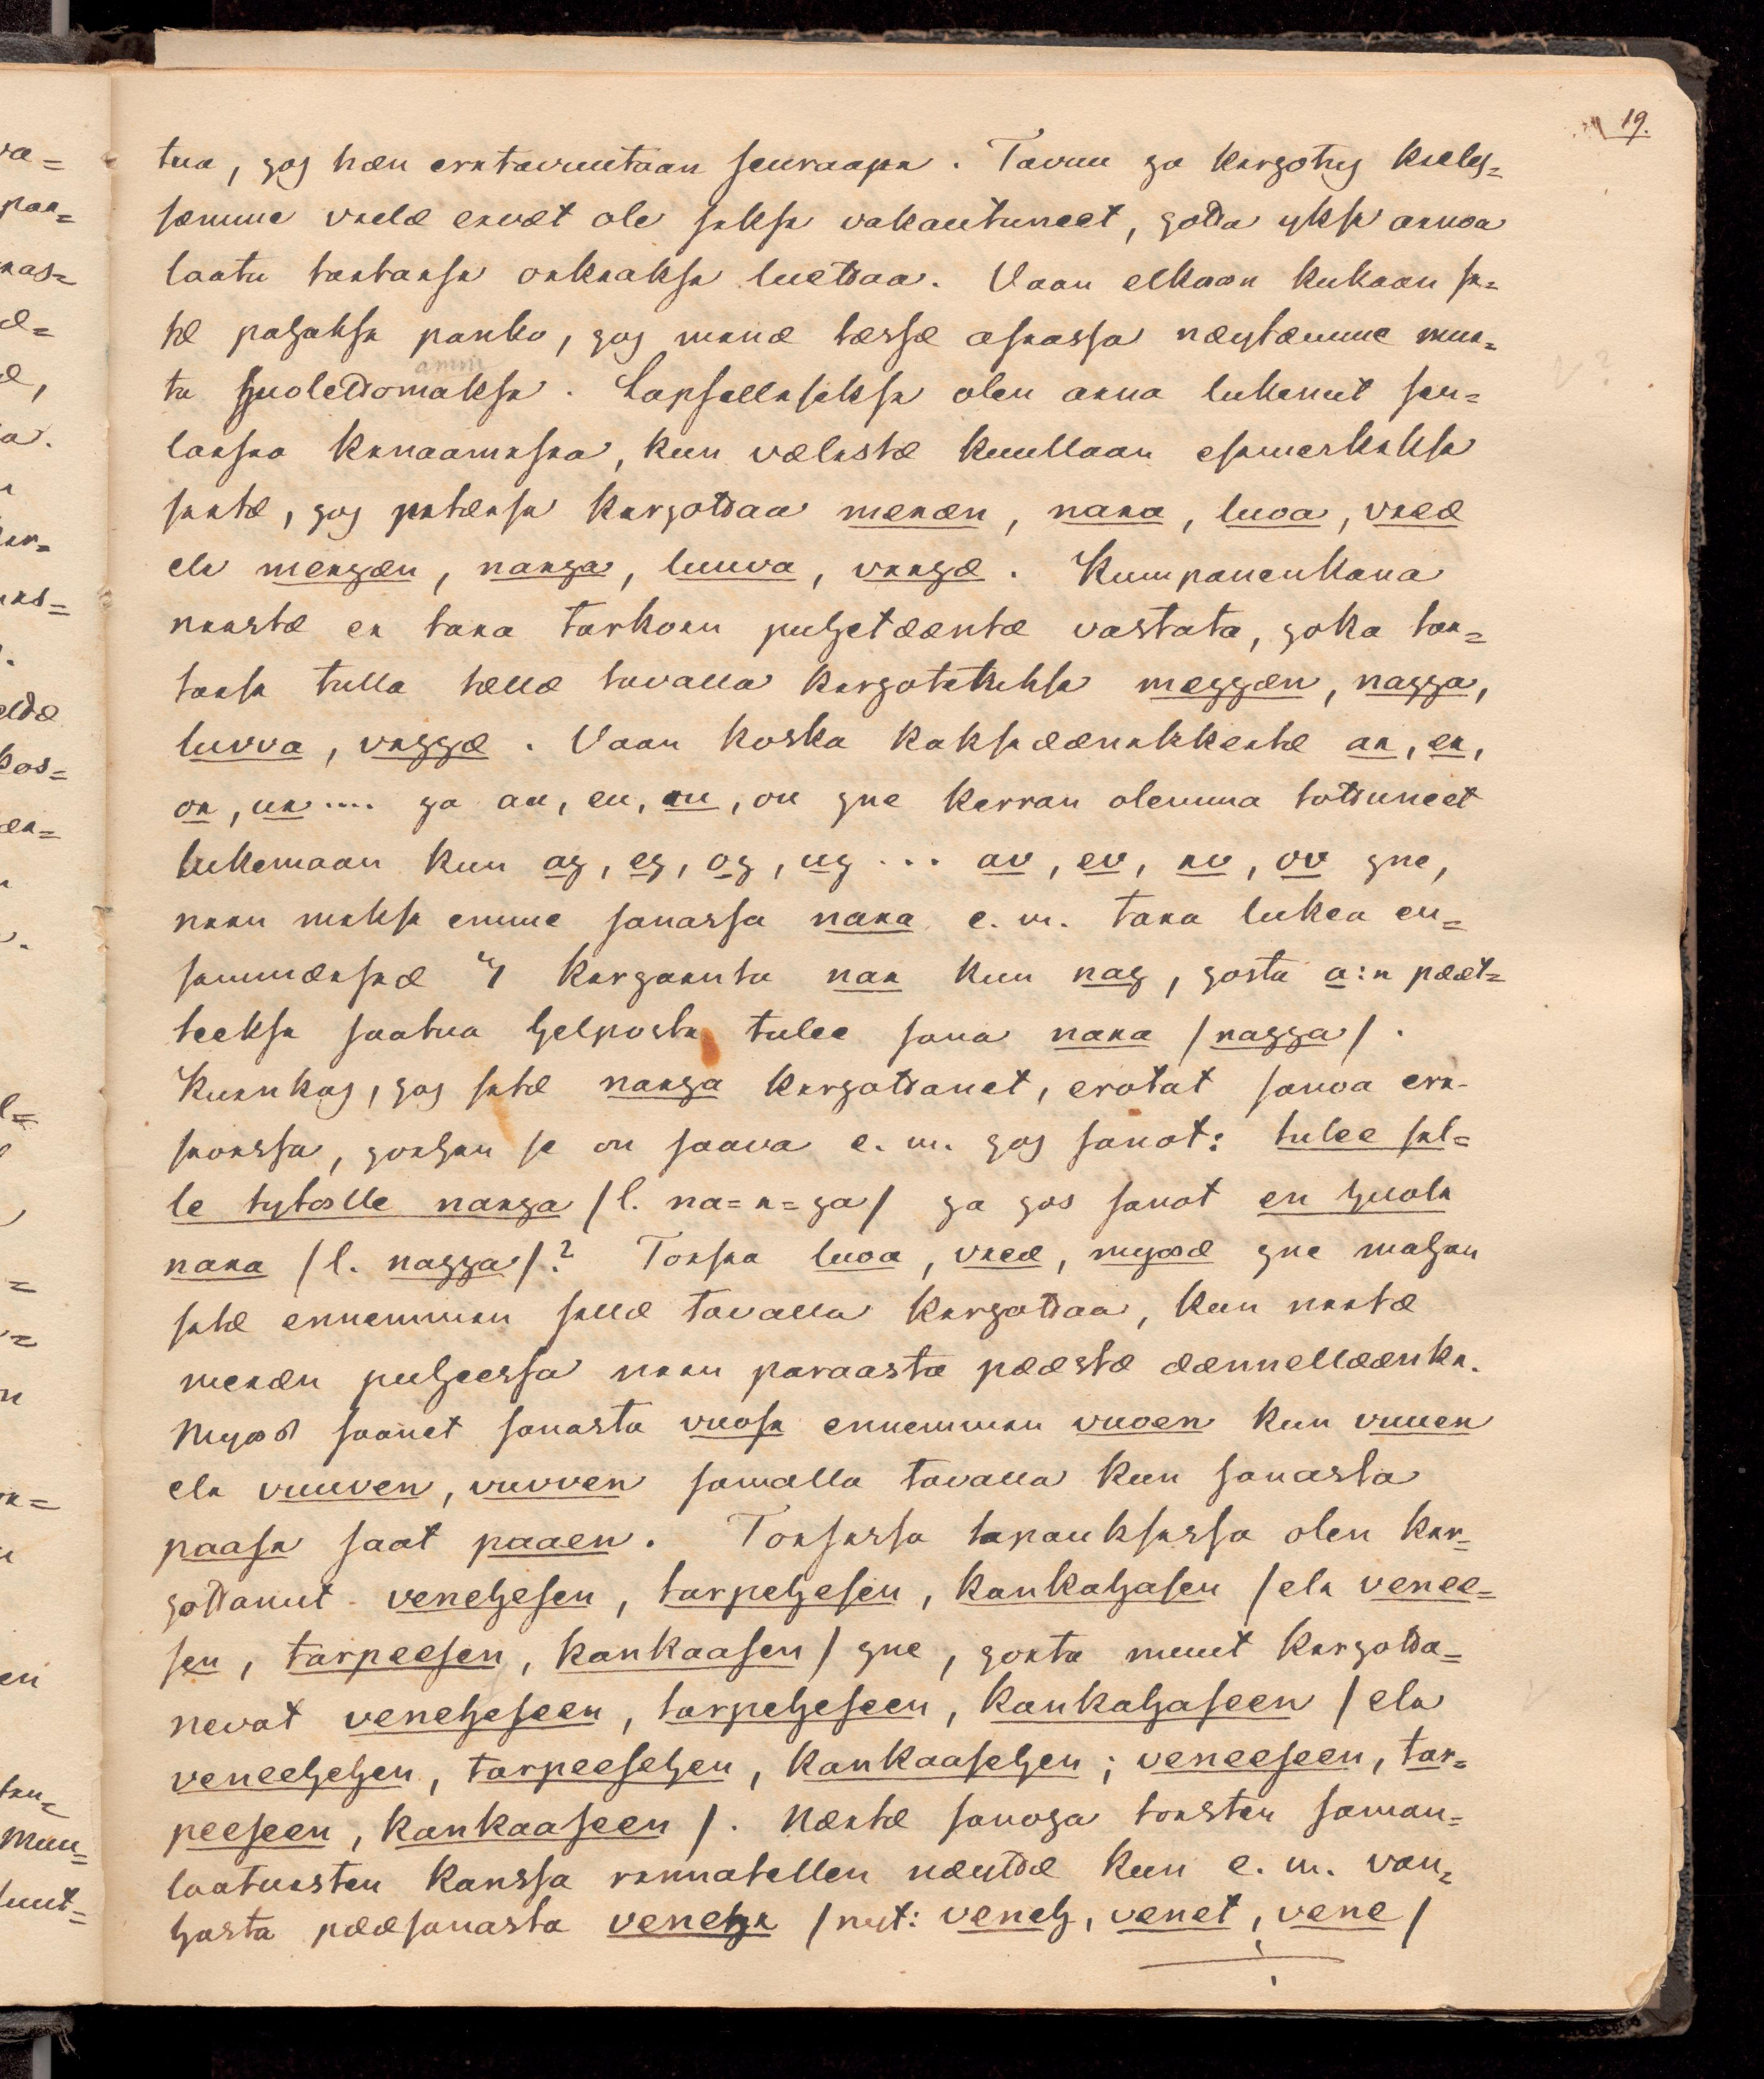 19.
tua, jos hæn eritavuutaan seuraapi. Tavuu ja kirjotus kieles=
sæmme vielæ eivæt ole siksi vakautuneet, jotta yksi ainoa
laatu taitaisi oikiaksi luettaa. Vaan elkoon kukaan si=
tæ pahaksi panko, jos minæ tæssæ asiassa næytæmme mui=
ta huolettomaksi. Lapsellisiksi olen aina lukenut sen=
laisia kinaamisia, kun vælistæ kuullaan esimerkiksi
siitæ, jos pitæisi kirjottaa meiæn, naia, luoa, vieæ
eli meijæn, naija, luuva, viijæ. Kumpanenkana
niistæ ei taia tarkoin puhetææntæ vastata, joka tai=
taisi tulla tællæ tavalla kirjotetuksi mejjæn, najja,
luvva, vijjæ. Vaan koska kaksiæænikkeitæ ai, ei,
oi, ui .... ja au, eu, iu, ou jne kerran olemma tottuneet
lukemaan kun aj, ej, oj, uj ... av, ev, iv, ov jne,
niin miksi emme sanassa naia e. m. taia lukea en=
simmæisiæ kirjainta nai kun naj, josta a:n pææt=
teeksi saatua helposti tulee sana naia /najja/.
Kuinkas, jos sitæ naija kirjottanet, erotat sanoa eri-
seoissa, joihin se on saava e. m. jos sanot: tulee sil=
le tytœlle naija /l. na=i=ja/ ja jos sanot en huoli
naia /l. najja/? Toisia luoa, vieæ, myœæ jne mahan
sitæ ennemmin sillæ tavalla kirjottaa, kun niitæ
meiæn puheessa niin paraasta pææstæ æænnellæænki.
Myœs saanet sanasta vuosi ennemmin vuoen kun vuuen
eli vuuven, vuvven samalla tavalla kun sanasta
paasi saat paaen. Toisissa tapauksissa olen kir=
jottanut venehesen, tarpehesen, kankahasen /eli venee=
sen, tarpeesen, kankaasen/ jne, joita muut kirjotta=
nevat veneheseen, tarpeheseen, kankahaseen /eli
veneehehen, tarpeesehen, kankaasehen; veneeseen, tar=
peeseen, kankaaseen/. Næitæ sanoja toisten saman=
laatuisten kanssa rinnatellen næyttæ kun e. m. van=
hasta pææsanasta venehi /nyt: veneh, venet, vene/